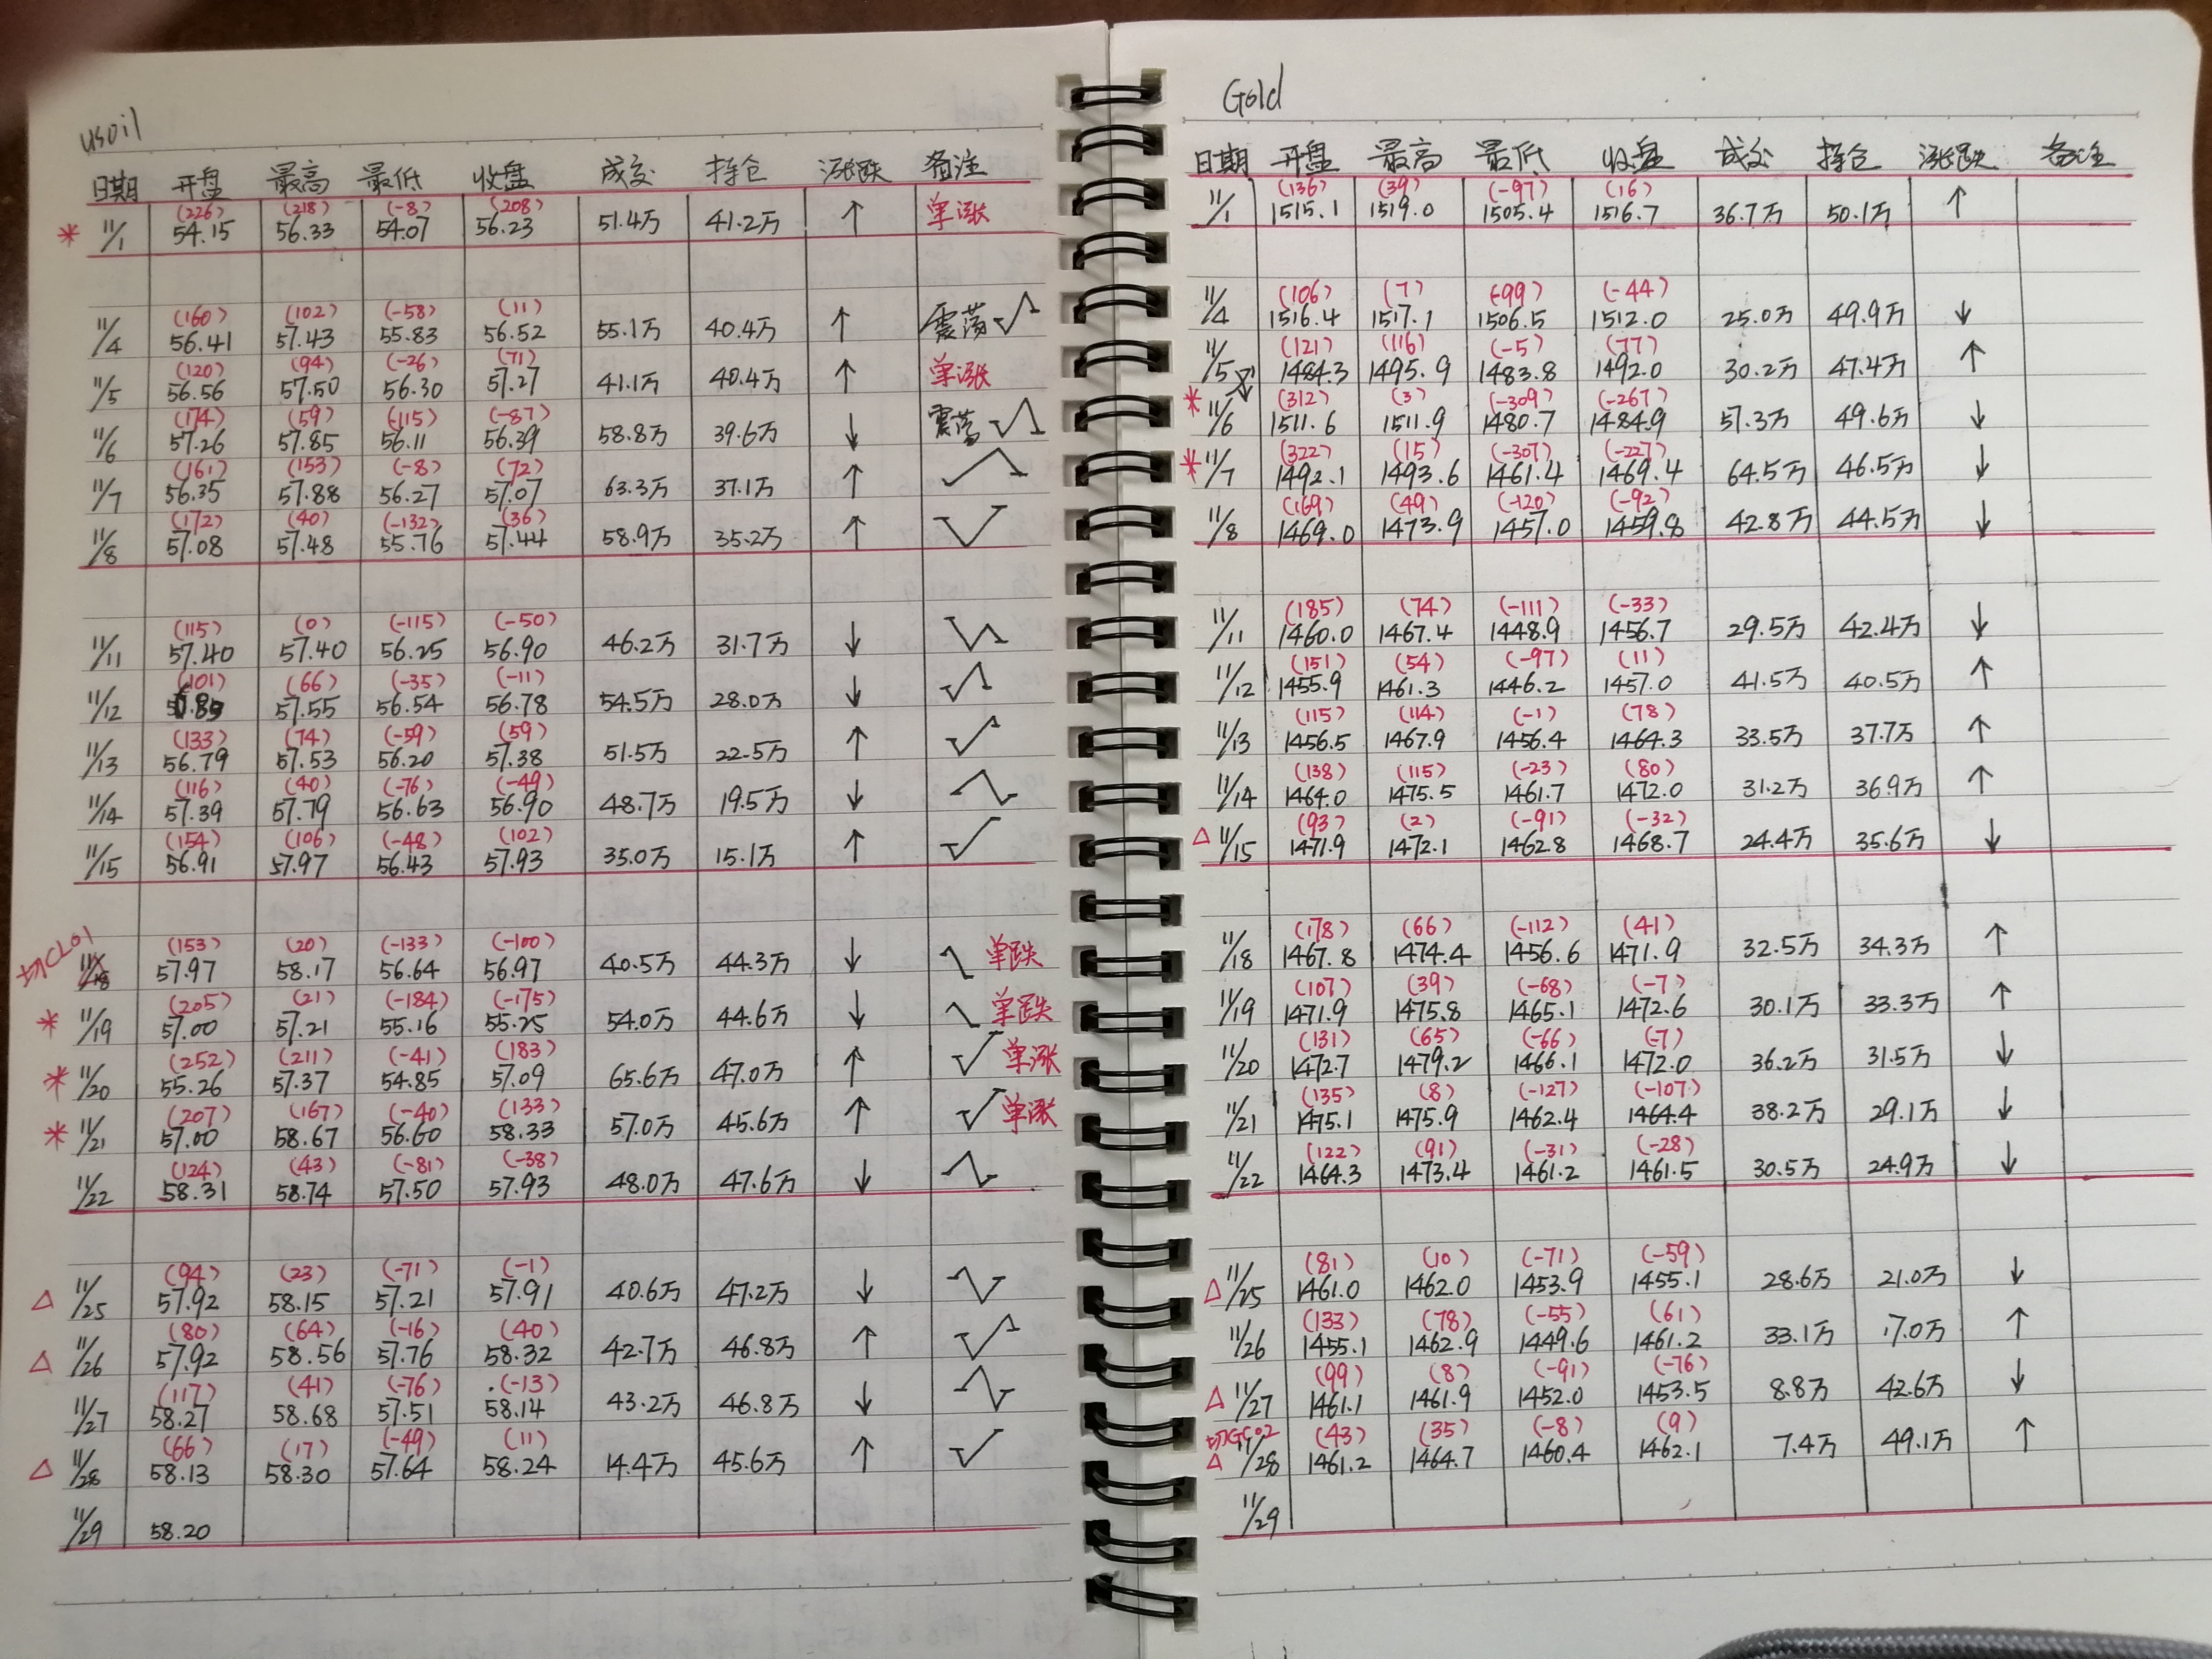 usoil
日期 开盘 最高 最低 收盘 成交 持仓 涨跌 备注
(226) (218) (-8) (208)
* 11/1 54.15 56.33 54.07 56.23 51.4万 41.2万 ↑ 单涨
(160) (102) (-58) (11)
11/4 56.41 57.43 55.83 56.52 55.1万 40.4万 ↑ 震荡
(120) (94) (-26) (71)
11/5 56.56 57.50 56.30 57.27 41.1万 40.4万 ↑ 单涨
(174) (59) (-115) (-87)
11/6 57.26 57.85 56.11 56.39 58.8万 39.6万 ↓ 震荡
(161) (153) (-8) (72)
11/7 56.35 57.88 56.27 57.07 63.3万 37.1万 ↑
(172) (40) (-132) (36)
11/8 57.08 57.48 55.76 57.44 58.9万 35.2万 ↑
(115) (0) (-115) (-50)
11/11 57.40 57.40 56.25 56.90 46.2万 31.7万 ↓
(101) (66) (-35) (-11)
11/12 57.55 56.54 56.78 54.5万 28.0万 ↓
(133) (74) (-59) (59)
11/13 56.79 57.53 56.20 57.38 51.5万 22.5万 ↑
(116) (40) (-76) (-49)
11/14 57.39 57.79 56.63 56.90 48.7万 19.5万 ↓
(154) (106) (-48) (102)
11/15 56.91 57.97 56.43 57.93 35.0万 15.1万 ↑
切CL01 (153) (20) (-133) (-100)
11/18 57.97 58.17 56.64 56.97 40.5万 44.3万 ↓ 单跌
(205) (21) (-184) (-175)
* 11/19 57.00 57.21 55.16 55.25 54.0万 44.6万 ↓ 单跌
(252) (211) (-41) (183)
* 11/20 55.26 57.37 54.85 57.09 65.6万 47.0万 ↑ 单涨
(207) (167) (-40) (133)
* 11/21 57.00 58.67 56.60 58.33 57.0万 45.6万 ↑ 单涨
(124) (43) (-81) (-38)
11/22 58.31 58.74 57.50 57.93 48.0万 47.6万 ↓
(94) (23) (-71) (-1)
△ 11/25 57.92 58.15 57.21 57.91 40.6万 47.2万 ↓
(80) (64) (-16) (40)
△ 11/26 57.92 58.56 57.76 58.32 42.7万 46.8万 ↑
(117) (41) (-76) (-13)
11/27 58.27 58.68 57.51 58.14 43.2万 46.8万 ↓
(66) (17) (-49) (11)
△ 11/28 58.13 58.30 57.64 58.24 14.4万 45.6万 ↑
11/29 58.20
Gold
日期 开盘 最高 最低 收盘 成交 持仓 涨跌 备注
(136) (39) (-97) (16)
11/1 1515.1 1519.0 1505.4 1516.7 36.7万 50.1万 ↑
(106) (7) (-99) (-44)
11/4 1516.4 1517.1 1506.5 1512.0 25.0万 49.9万 ↓
(121) (116) (-5) (77)
11/5 1484.3 1495.9 1483.8 1492.0 30.2万 47.4万 ↑
(312) (3) (-309) (-267)
* 11/6 1511.6 1511.9 1480.7 1484.9 57.3万 49.6万 ↓
(322) (15) (-307) (-227)
* 11/7 1492.1 1493.6 1461.4 1469.4 64.5万 46.5万 ↓
(169) (49) (-120) (-92)
11/8 1469.0 1473.9 1457.0 1459.8 42.8万 44.5万 ↓
(185) (74) (-111) (-33)
11/11 1460.0 1467.4 1448.9 1456.7 29.5万 42.4万 ↓
(151) (54) (-97) (11)
11/12 1455.9 1461.3 1446.2 1457.0 41.5万 40.5万 ↑
(115) (114) (-1) (78)
11/13 1456.5 1467.9 1456.4 1464.3 33.5万 37.7万 ↑
(138) (115) (-23) (80)
11/14 1464.0 1475.5 1461.7 1472.0 31.2万 36.9万 ↑
(93) (2) (-91) (-32)
△ 11/15 1471.9 1472.1 1462.8 1468.7 24.4万 35.6万 ↓
(178) (66) (-112) (41)
11/18 1467.8 1474.4 1456.6 1471.9 32.5万 34.3万 ↑
(107) (39) (-68) (-7)
11/19 1471.9 1475.8 1465.1 1472.6 30.1万 33.3万 ↑
(131) (65) (-66) (-7)
11/20 1472.7 1479.2 1466.1 1472.0 36.2万 31.5万 ↓
(135) (8) (-127) (-107)
11/21 1475.1 1475.9 1462.4 1464.4 38.2万 29.1万 ↓
(122) (91) (-31) (-28)
11/22 1464.3 1473.4 1461.2 1461.5 30.5万 24.9万 ↓
(81) (10) (-71) (-59)
△ 11/25 1461.0 1462.0 1453.9 1455.1 28.6万 21.0万 ↓
(133) (78) (-55) (61)
11/26 1455.1 1462.9 1449.6 1461.2 33.1万 17.0万 ↑
(99) (8) (-91) (-76)
△ 11/27 1461.1 1461.9 1452.0 1453.5 8.8万 42.6万 ↓
切GC02 (43) (35) (-8) (9)
△ 11/28 1461.2 1464.7 1460.4 1462.1 7.4万 49.1万 ↑
11/29